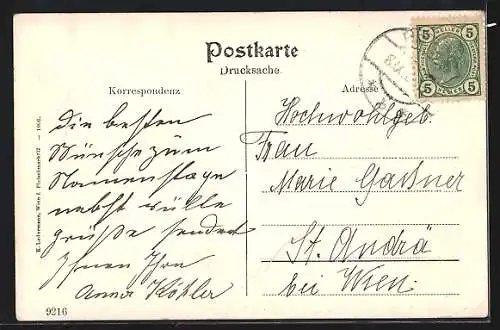 Postkarte
Drucksache.
Korrespondenz
Adresse
5 HELLER 5
5 5
Die besten
Wünsche zum
Namenstage
nebst viele
grüße sendet
Ihnen Ihre
Anna Köhler
Hochwohlgeb.
Frau
Marie Gaßner
St. Andrä
bei Wien.
K. Ledermann, Wien I. Fleischmarkt 12 — 1906.
9216